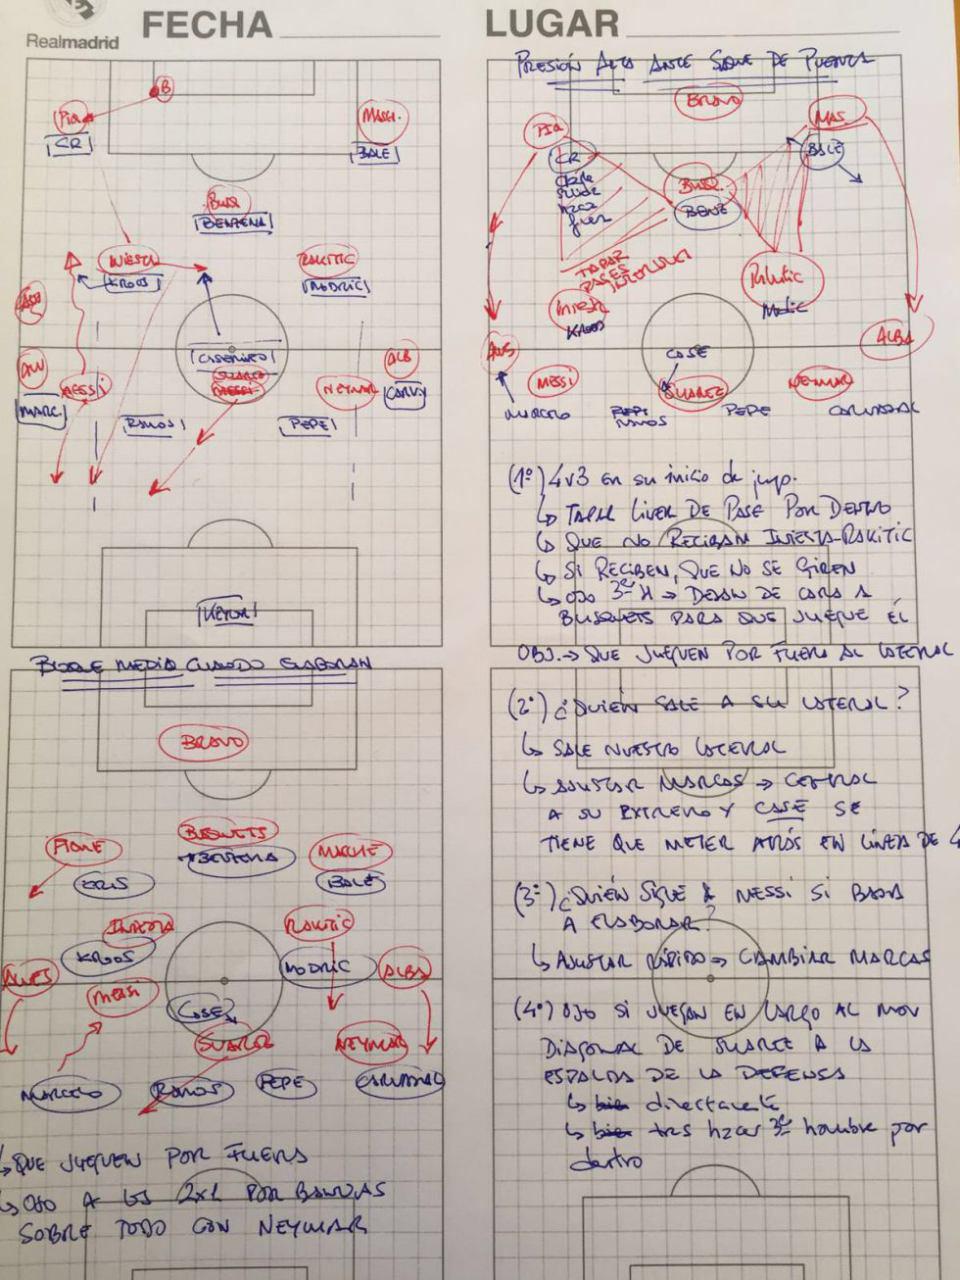 Realmadrid
FECHA
LUGAR
B
PIQ
CR
MASCH.
BALE
BUSQ
BENZEMA
INIESTA
KROOS
RAKITIC
MODRIC
CASEMIRO
SUAREZ
MESSI
MESSI
NEYMAR
ALB
CARVJ
MARC.
RAMOS
PEPE
KEYLOR
BLOQUE MEDIO CUANDO ELABORAN
BRAVO
PIQUE
BUSQUETS
BENZEMA
MARCHE
BALE
CRIS
INIESTA
KROOS
RAKITIC
MODRIC
ALVES
ALBA
MESSI
CASE
SUAREZ
NEYMAR
MARCELO
RAMOS
PEPE
CARVAJAL
↳ QUE JUEGUEN POR FUERA
↳ OJO A LOS 2x1 POR BANDAS
SOBRE TODO CON NEYMAR
PRESIÓN ALTA ANTE SAQUE DE PUERTA
BRAVO
PIQ
MAS.
CR
BALE
hacia
fuera
BUSQ.
BENZ
TAPAR
PASES
INTERIORES
INIESTA
KROOS
Rakitic
Modric
ALBA
CASE
MESSI
SUAREZ
NEYMAR
MARCELO
PEPE
RAMOS
PEPE
CARVAJAL
(1º) 4v3 en su inicio de juego.
↳ TAPAR LINEA DE PASE POR DENTRO
↳ QUE NO RECIBAN INIESTA-RAKITIC
↳ SI RECIBEN, QUE NO SE GIREN
↳ OJO 3er H → DEJAN DE CARA A
BUSQUETS PARA QUE JUEGUE ÉL
OBJ. → QUE JUEGUEN POR FUERA AL LATERAL
(2º) ¿QUIÉN SALE A SU LATERAL?
↳ SALE NUESTRO LATERAL
↳ AJUSTAR MARCAS → CENTRAL
A SU EXTREMO Y CASE SE
TIENE QUE METER ATRÁS EN LÍNEA DE 4
(3º) ¿QUIÉN SIGUE A MESSI SI BAJA
A ELABORAR?
↳ AJUSTAR RÁPIDO → CAMBIAR MARCAS
(4º) OJO SI JUEGAN EN LARGO AL MOV
DIAGONAL DE SUAREZ A LA
ESPALDA DE LA DEFENSA
↳ bien directamente
↳ bien tras hacer 3er hombre por
dentro